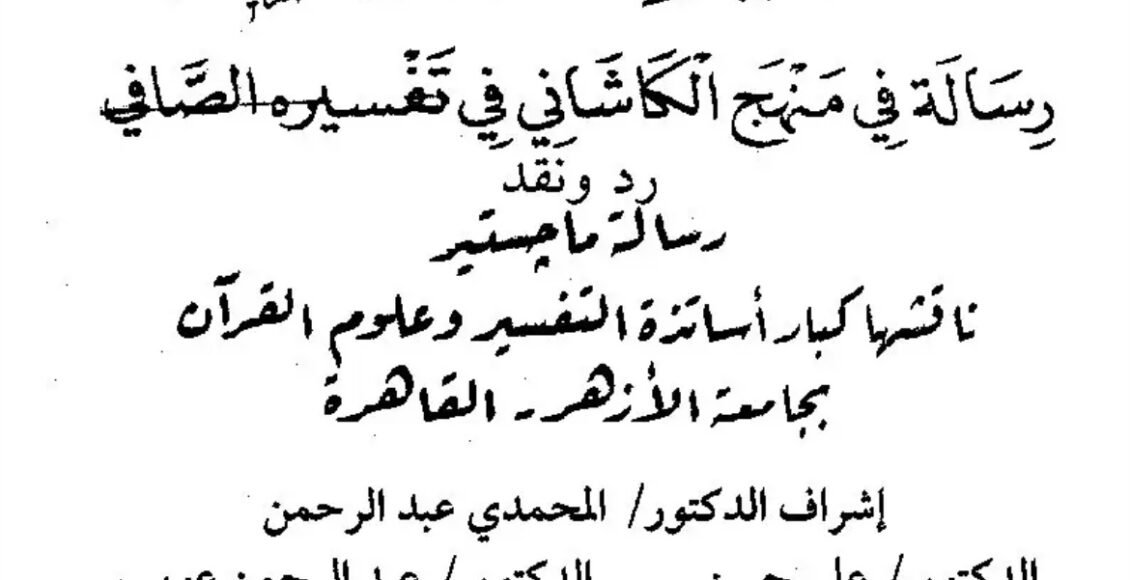 رِسَالَة فِي مَنْهَج الْكَاشَانِي فِي تَفْسيره الصَّافي
رد ونقد
رسالة ماجستير
ناقشها كبار أساتذة التفسير وعلوم القرآن
بجامعة الأزهر - القاهرة
إشراف الدكتور/ المحمدي عبد الرحمن
الدكتور / علي حسن الدكتور / عبد الرحمن